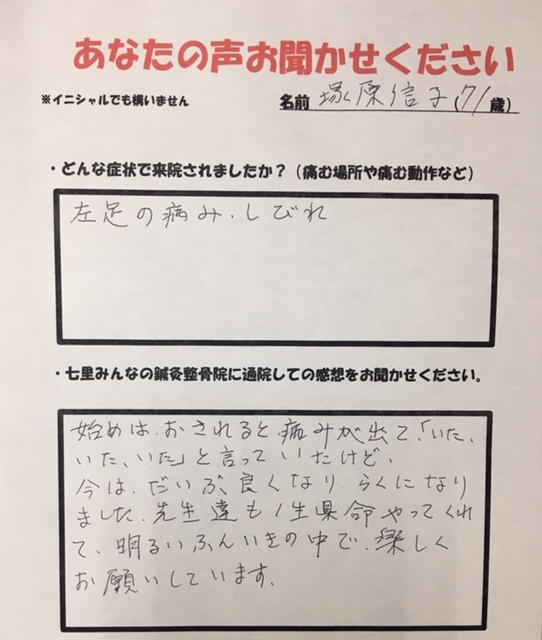 あなたの声お聞かせください
※イニシャルでも構いません
名前 塚原信子(71歳)
・どんな症状で来院されましたか？（痛む場所や痛む動作など）
左足の痛み.しびれ
・七里みんなの鍼灸整骨院に通院しての感想をお聞かせください。
始めは.おされると.痛みが出て、「いた、
いた、いた」と言っていたけど、
今は、だいぶ、良くなり.らくになり
ました.先生達も1生県命やってくれ
て、明るいふんいきの中で.楽しく
お願いしています.